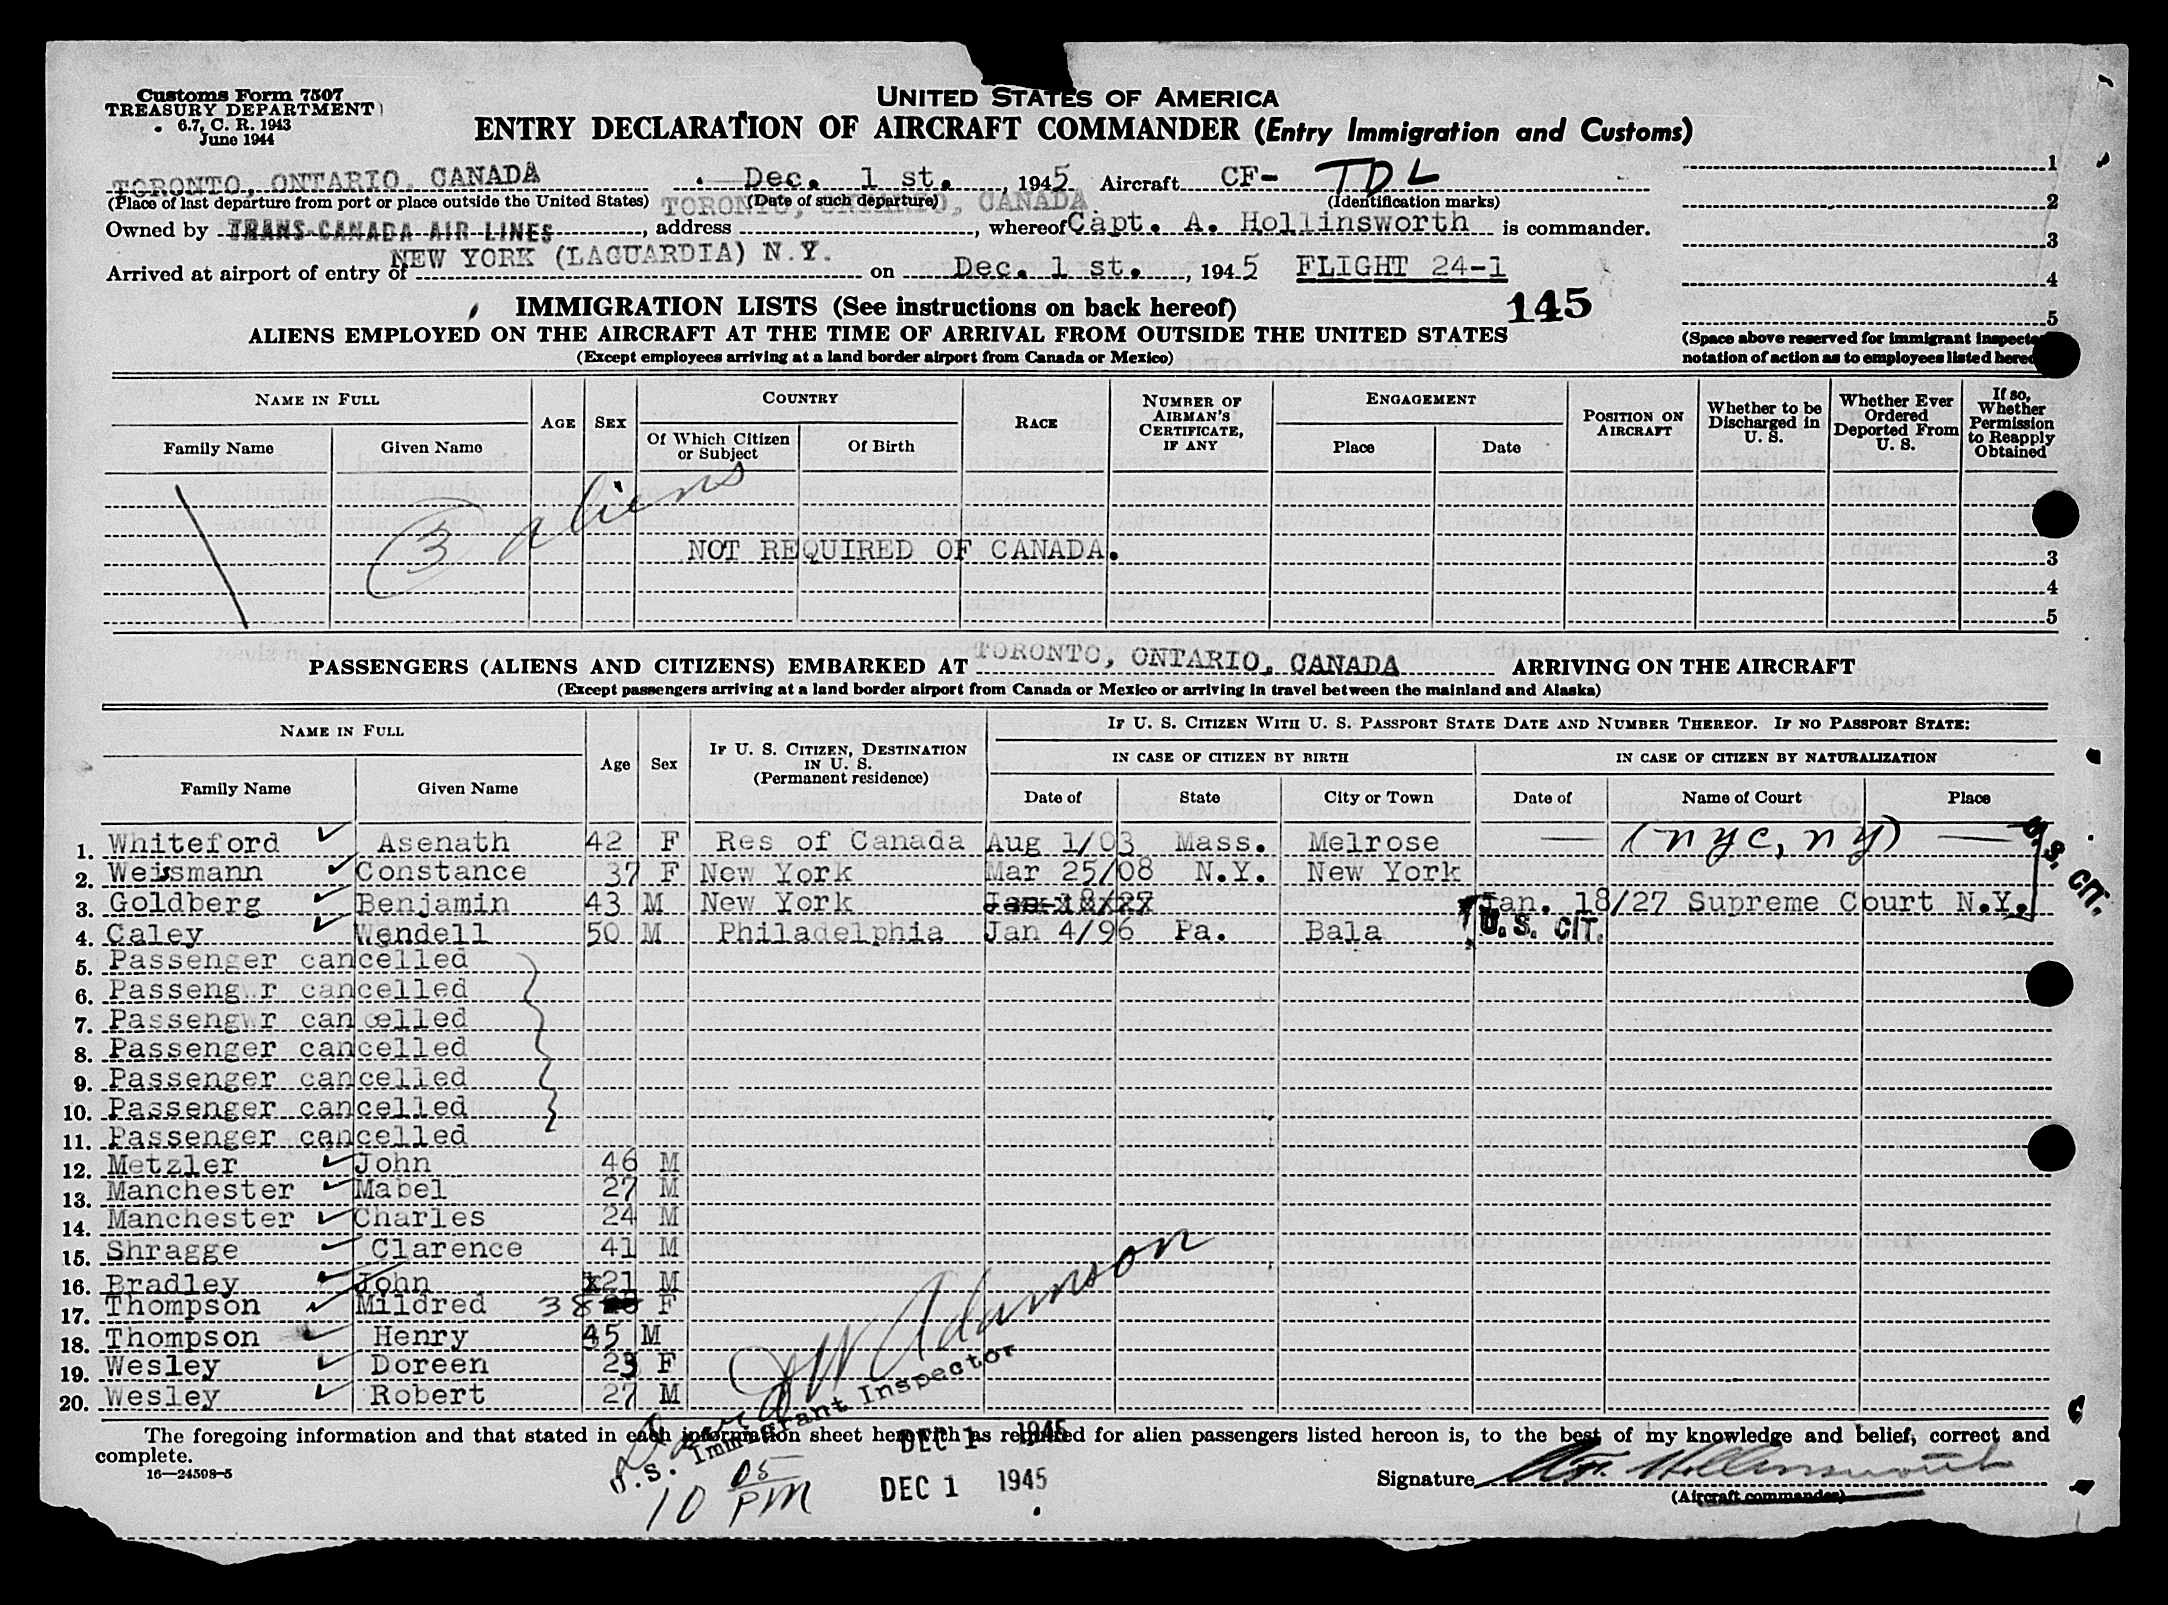 Customs Form 7507
TREASURY DEPARTMENT
6.7, C. R. 1943
June 1944
UNITED STATES OF AMERICA
ENTRY DECLARATION OF AIRCRAFT COMMANDER (Entry Immigration and Customs)
TORONTO, ONTARIO, CANADA Dec. 1 st. , 1945 Aircraft CF- TDL
(Place of last departure from port or place outside the United States) (Date of such departure) (Identification marks)
TORONTO, ONTARIO, CANADA
Owned by TRANS-CANADA AIR LINES , address , whereof Capt. A. Hollinsworth is commander.
Arrived at airport of entry of NEW YORK (LAGUARDIA) N.Y. on Dec. 1 st. , 1945 FLIGHT 24-1
1
2
3
4
5
(Space above reserved for immigrant
notation of action as to employees listed
IMMIGRATION LISTS (See instructions on back hereof) 145
ALIENS EMPLOYED ON THE AIRCRAFT AT THE TIME OF ARRIVAL FROM OUTSIDE THE UNITED STATES
(Except employees arriving at a land border airport from Canada or Mexico)
NAME IN FULL AGE SEX COUNTRY RACE NUMBER OF AIRMAN'S CERTIFICATE, IF ANY ENGAGEMENT POSITION ON AIRCRAFT Whether to be Discharged in U. S. Whether Ever Ordered Deported From U. S. If so, Whether Permission to Reapply Obtained
Family Name Given Name Of Which Citizen or Subject Of Birth Place Date
3 aliens
NOT REQUIRED OF CANADA.
3
4
5
PASSENGERS (ALIENS AND CITIZENS) EMBARKED AT TORONTO, ONTARIO, CANADA ARRIVING ON THE AIRCRAFT
(Except passengers arriving at a land border airport from Canada or Mexico or arriving in travel between the mainland and Alaska)
NAME IN FULL Age Sex IF U. S. CITIZEN, DESTINATION IN U. S. (Permanent residence) IF U. S. CITIZEN WITH U. S. PASSPORT STATE DATE AND NUMBER THEREOF. IF NO PASSPORT STATE:
IN CASE OF CITIZEN BY BIRTH IN CASE OF CITIZEN BY NATURALIZATION
Family Name Given Name Date of State City or Town Date of Name of Court Place
1. Whiteford Asenath 42 F Res of Canada Aug 1/03 Mass. Melrose — (NYC, NY) —
2. Weissmann Constance 37 F New York Mar 25/08 N.Y. New York
U.S. CIT.
3. Goldberg Benjamin 43 M New York Jan. 18/27 Supreme Court N.Y.
4. Caley Wendell 50 M Philadelphia Jan 4/96 Pa. Bala U.S. CIT.
5. Passenger cancelled
6. Passeng r cancelled
7. Passengwr cancelled
8. Passenger cancelled
9. Passenger cancelled
10. Passenger cancelled
11. Passenger cancelled
12. Metzler John 46 M
13. Manchester Mabel 27 M
14. Manchester Charles 24 M
15. Shragge Clarence 41 M
16. Bradley John x21 M
17. Thompson Mildred 38 F
18. Thompson Henry 45 M
19. Wesley Doreen 23 F
20. Wesley Robert 27 M
JW Adamson
U.S. Immigrant Inspector
The foregoing information and that stated in each information sheet herewith as required for alien passengers listed hereon is, to the best of my knowledge and belief, correct and
complete.
DEC 1 1945
16—24508-5
10 05 PM
DEC 1 1945
Signature A. Hollinsworth
(Aircraft commander)